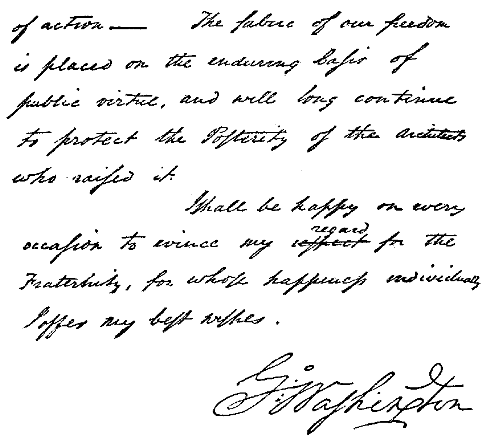 of action — The fabric of our freedom
is placed on the enduring basis of
public virtue, and will long continue
to protect the Posterity of the architects
who raised it.
I shall be happy on every
regard
occasion to evince my respect for the
Fraternity, for whose happiness individually
I offer my best wishes.
Go: Washington